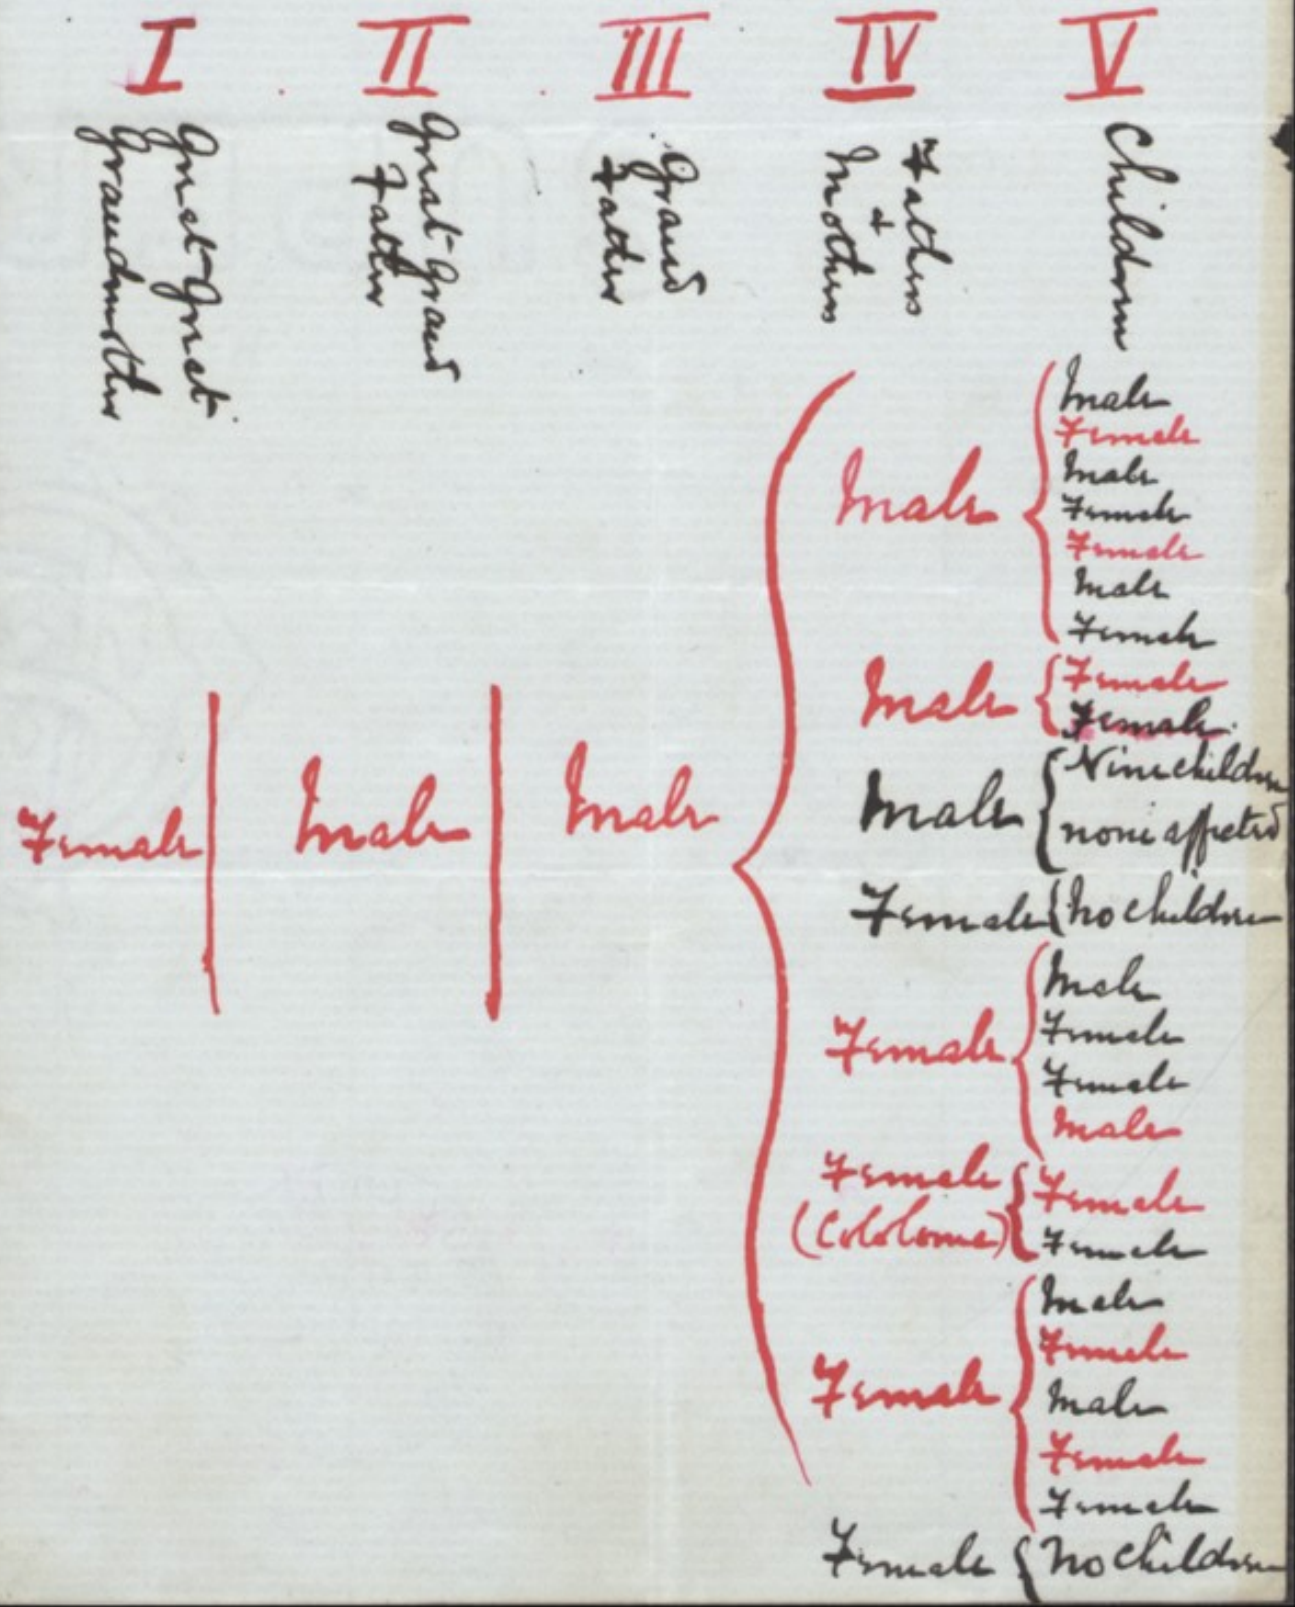 I II III IV V
Great Great
Grandmother
Great Grand
Father
Grand
Father
Fathers
+
Mothers
Children
Female
Male
Male
Male
Male
Female
Male
Female
Female
Male
Female
Male
Female
Female
Male
Nine children
none affected
Female
No children
Female
Male
Female
Female
Male
Female
(Coloboma)
Female
Female
Female
Male
Female
Male
Female
Female
Female
No children